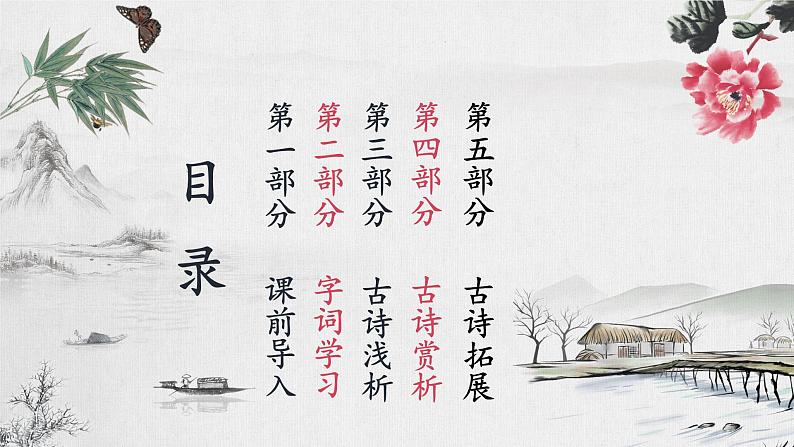 目录
第一部分 课前导入
第二部分 字词学习
第三部分 古诗浅析
第四部分 古诗赏析
第五部分 古诗拓展